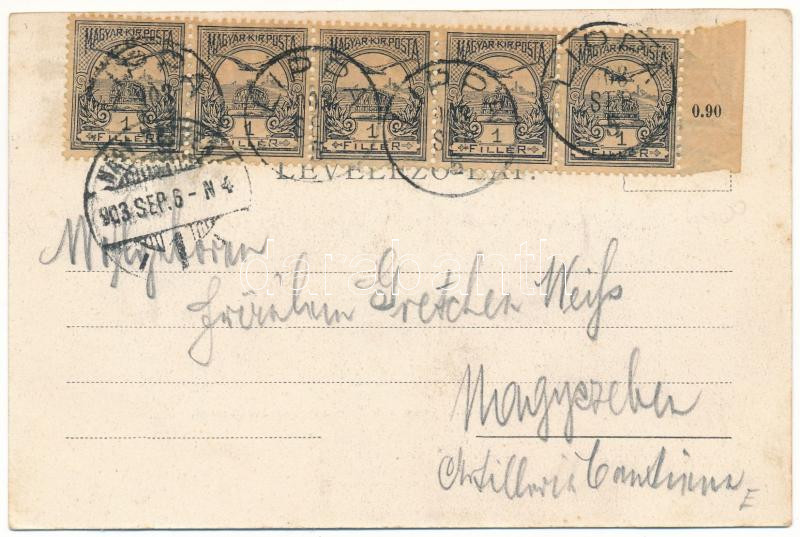 MAGYAR·KIR·POSTA MAGYAR·KIR·POSTA MAGYAR·KIR·POSTA MAGYAR·KIR·POSTA MAGYAR·KIR·POSTA
1 1 1 1 1
FILLÉR FILLÉR FILLÉR FILLÉR FILLÉR
0.90
LEVELEZŐ-LAP.
903 SEP. 6 - N 4
darabanth
Wohlgeboren
Fräulein Gretchen Weiß
Nagyszeben
Artillerie
E